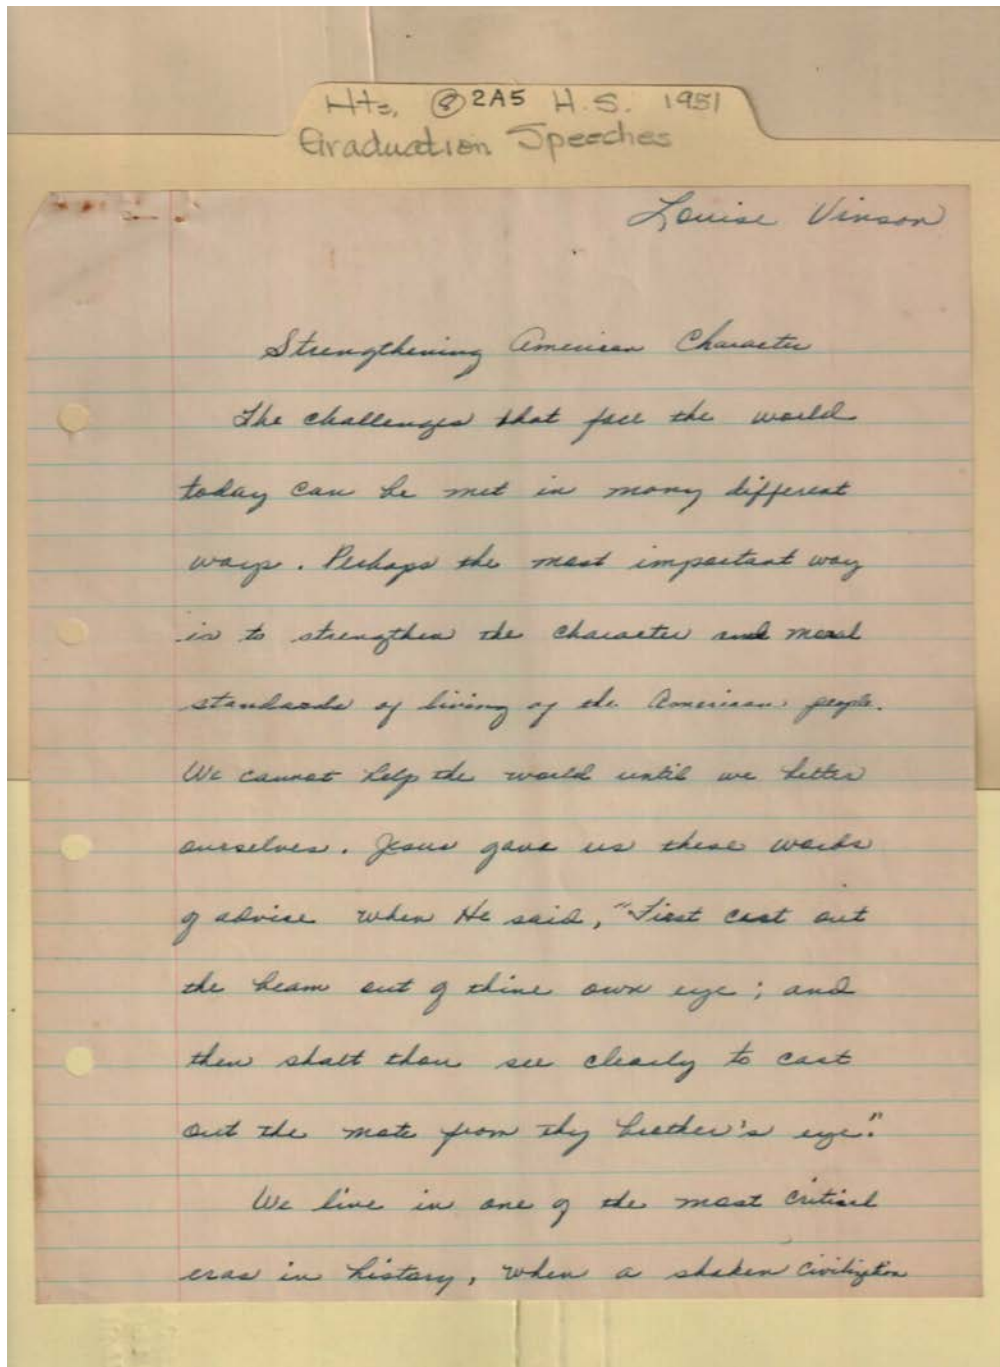 Hts, ⑧ 2A5 H.S. 1951
Graduation Speeches
Louise Vinson
Strengthening American Character
The challenges that face the world
today can be met in many different
ways. Perhaps the most important way
is to strengthen the character and moral
standards of living of the American people.
We cannot help the world until we better
ourselves. Jesus gave us these words
of advice when He said, "First cast out
the beam out of thine own eye; and
then shalt thou see clearly to cast
out the mote from thy brother's eye."
We live in one of the most critical
eras in history, when a shaken civilization